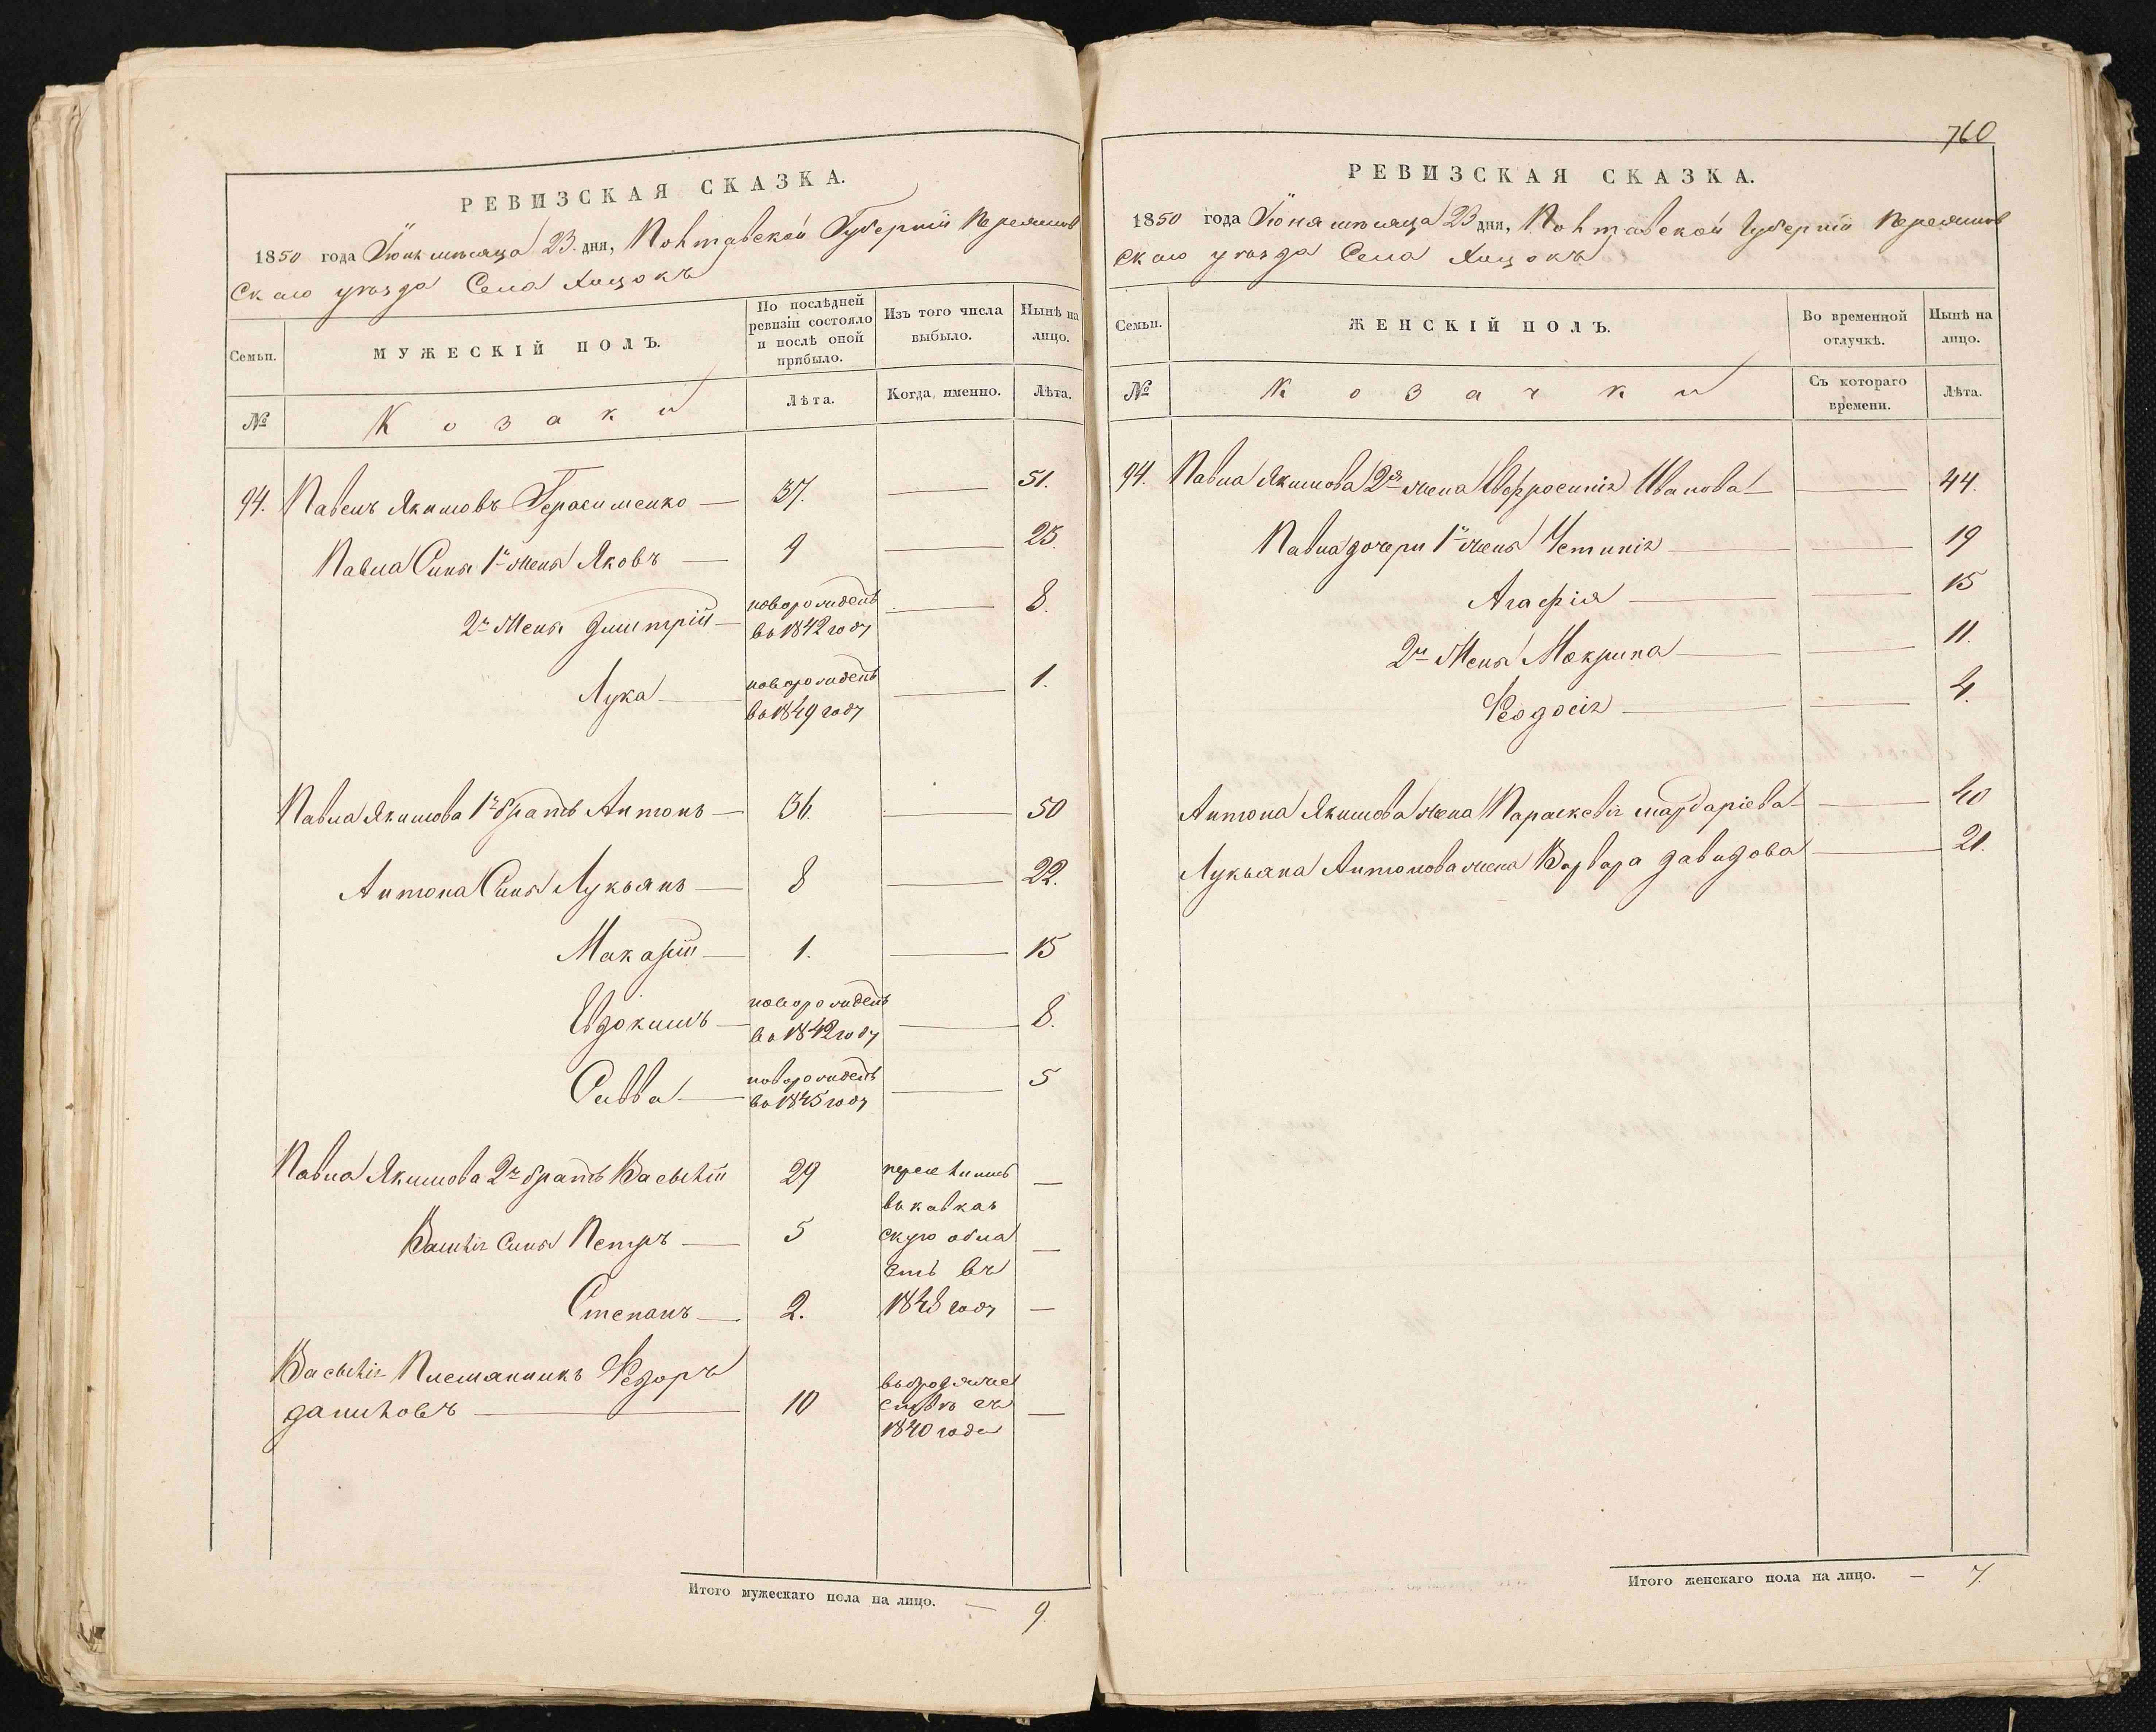 РЕВИЗСКАЯ СКАЗКА.
1850 года Іюня мѣсяца 23 дня, Полтавской Губерніи Переяслов
скаго уѣзда Села Хоцокъ
Семьи.
МУЖЕСКІЙ ПОЛЪ.
По послѣдней
ревизіи состояло
и послѣ оной
прибыло.
Изъ того числа
выбыло.
Нынѣ на
лицо.
№
Козаки
Лѣта.
Когда именно.
Лѣта.
94. Павелъ Якимовъ Герасименко — 37. — 51.
Павла Сынъ 1й жены Яковъ — 9 — 23.
2й жены Дмитрій — новорожденъ во 1842 году — 8.
Лука — новорожденъ во 1849 году — 1.
Павла Якимова 1й братъ Антонъ — 36. — 50
Антона Сынъ Лукьянъ — 8 — 22.
Макарій — 1. — 15
Евдокимъ — новорожденъ во 1842 году — 8.
Савва — новорожденъ во 1845 году — 5
Павла Якимова 2й братъ Василій 29 —
Василія Сынъ Петръ — 5 —
Степанъ — 2. —
переселились
въ кавказ
скую обла
сть въ
1848 году
Василія Племянникъ Федоръ
Даниловъ — 10 —
въ бродяже
ствѣ съ
1840 года
Итого мужескаго пола на лицо. — 9.
760
РЕВИЗСКАЯ СКАЗКА.
1850 года Іюня мѣсяца 23 дня, Полтавской Губерніи Переяслов
скаго уѣзда Села Хоцокъ
Семьи.
ЖЕНСКІЙ ПОЛЪ.
Во временной
отлучкѣ.
Нынѣ на
лицо.
№
Козачки
Съ котораго
времени.
Лѣта.
94. Павла Якимова 2я жена Евфросинія Иванова — 44.
Павла дочери 1й жены Устинія — 19
Агафія — 15
2й жены Макрина — 11.
Феодосія — 4.
Антона Якимова жена Параскевія Мардаріева — 40
Лукьяна Антонова жена Варвара Давидова — 21.
Итого женскаго пола на лицо. — 7.